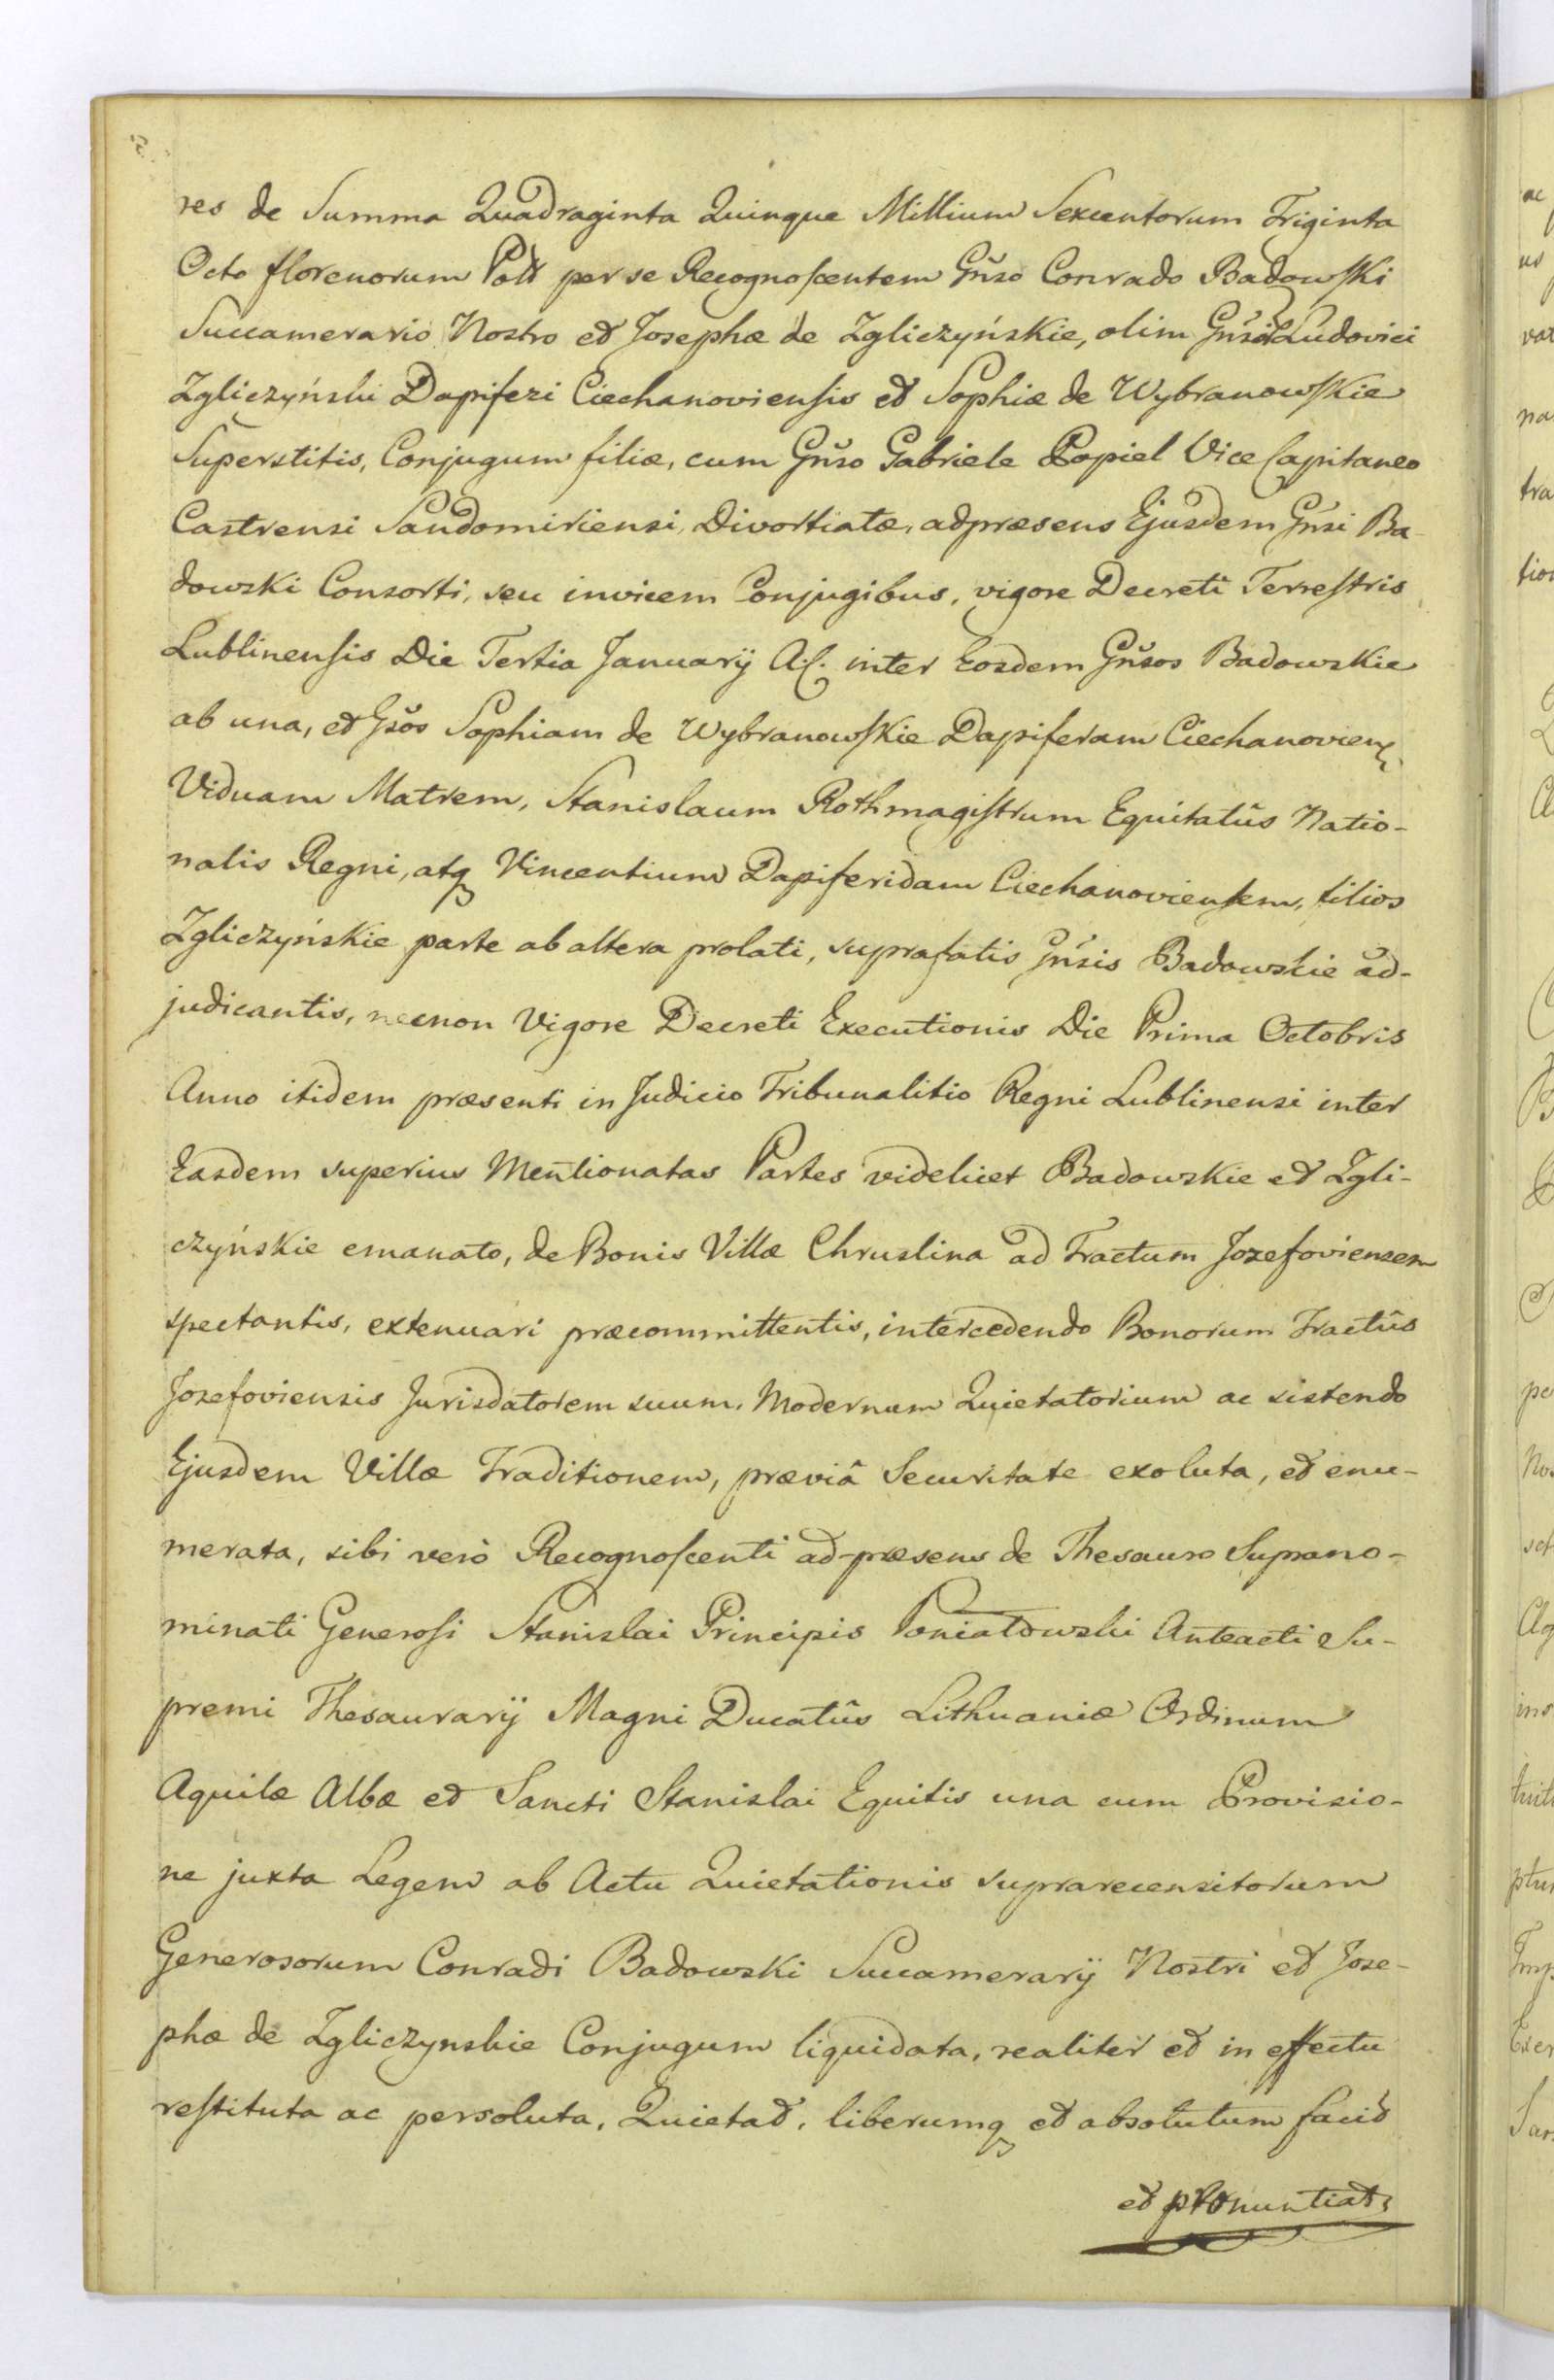 res de Summa Quadraginta Quinque Millium Sexcentorum Triginta
Octo florenorum Poll per se Recognoscentem Gnso Conrado Badowski
Succamerario Nostro et Josephæ de Zgliczyńskie, olim Gnsi Ludovici
Zgliczyński Dapiferi Ciechanoviensis et Sophiæ de Wybranowskie
Superstitis, Conjugum filiæ, cum Gnso Gabriele Popiel Vice Capitaneo
Castrensi Sandomiriensi, Divortiatæ, adpræsens Ejusdem Gnsi Ba-
dowski Consorti, seu invicem Conjugibus, vigore Decreti Terrestris
Lublinensis Die Tertia Januarÿ A.C. inter Eosdem Gnsos Badowskie
ab una, et Gsos Sophiam de Wybranowskie Dapiferam Ciechanovien
Viduam Matrem, Stanislaum Rothmagistrum Equitatûs Natio-
nalis Regni, atq Vincentium Dapiferidam Ciechanoviensem, filios
Zgliczyńskie parte ab altera prolati, suprafatis Gnsis Badowskie ad-
judicantis, necnon Vigore Decreti Executionis Die Prima Octobris
Anno itidem præsenti in Judicio Tribunalitio Regni Lublinensi inter
Easdem superius Mentionatas Partes videlicet Badowskie et Zgli-
czyńskie emanato, de Bonis Villæ Chruslina ad Tractum Jozefoviensem
spectantis, extenuari præcommittentis, intercedendo Bonorum Tractûs
Jozefoviensis Jurisdatorem suum, Modernum Quietatorium ac sistendo
Ejusdem Villæ Traditionem, præviâ Securitate exoluta, et enu-
merata, sibi verò Recognoscenti ad-præsens de Thesauro Suprano-
minati Generosi Stanislai Principis Poniatowski Anteacti Su-
premi Thesaurarÿ Magni Ducatûs Lithuaniæ Ordinum
Aquilæ Albæ et Sancti Stanislai Equitis una cum Provisio-
ne juxta Legem ab Actu Quietationis suprarecensitorum
Generosorum Conradi Badowski Succamerarÿ Nostri et Jose-
phæ de Zgliczynskie Conjugum liquidata, realiter et in effectu
restituta ac persoluta, Quietat, liberumq et absolutum facit
et pronuntiat,